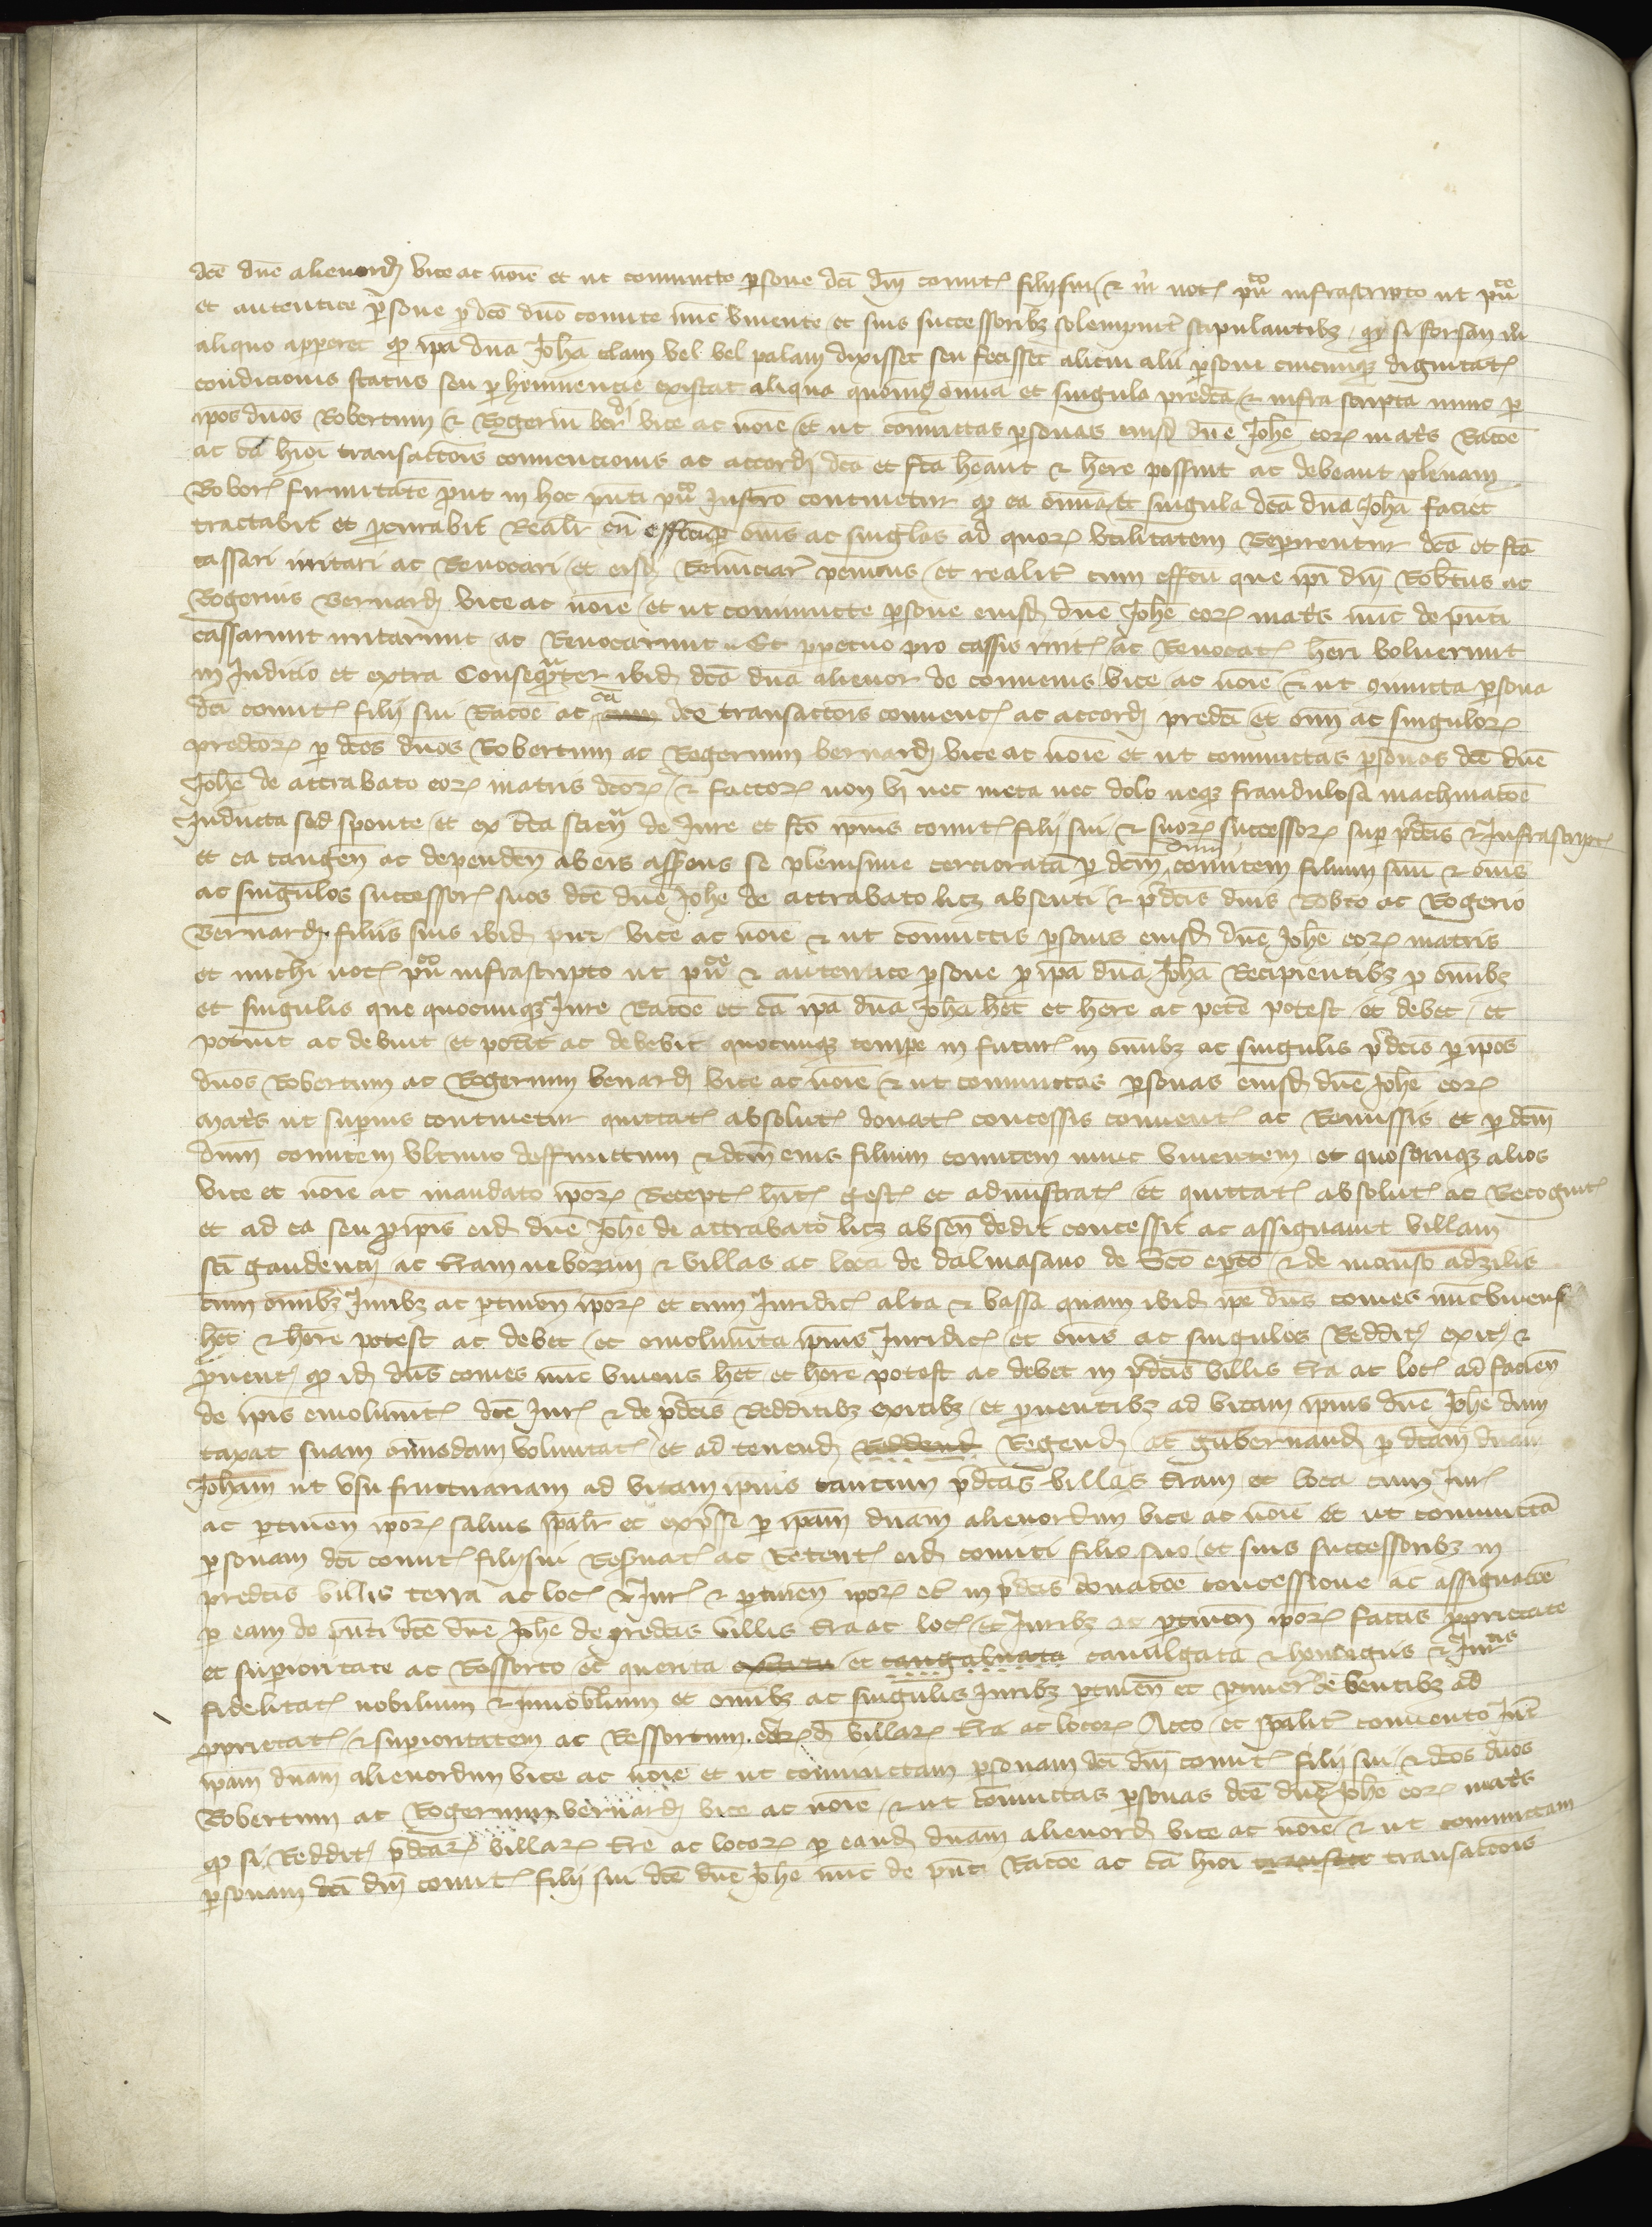 dce dne alienord vice ac noie et ut coniuncte psone dci dni comit filii sui et m not puco infrascripto ut puce
et autentice psone p dco dno comite nunc vivente et suis successoribz solempnit stipulantibz qd si forsan in
aliquo apperet qd ipa dna Joha clam vel vel palam dixisset seu fecisset alicui alii psone cuicunqz dignitat
condicionis status seu phemnencie existat aliqua quoinus omnia et singula predca et infra scripta nunc p
ipos dnos Robertum et Rogeriu berdi vice ac noie et ut coniunctas psonas eiusd dne Johe eor matis Racoe
ac ca hioi transactois convencionis ac accord dca et fca heant et here possint ac debeant plenam
Robor firmitate put in hoc pnti puco Instro continetur qd ea omnia et singula dca dna Joha faciet
tractabit et pcurabit Realit cu effectu p oms ac singlos ad quor utilitatem Repirentur dca et fca
cassari irritari ac Revocari et eisd Renunciar penitus et realit cum effctu que ipi dni Robtus ac
Rogerius Bernard vice ac noie et ut coniuncte psone eiusd dne Johe eor matis nuc de pnti
cassarunt irritarunt ac Revocarunt Et ppetuo pro cassis irrit ac Revocat heri voluerunt
in Judicio et extra Consequater ibid dca dna alienor de convenis vice ac noie et ut coniuncta psona
dci comit filii sui Racoe ac ca dce transactois convenc ac accord predci et omi ac singulor
predcor p dcos dnos Robertum ac Rogerium bernard vice ac noie et ut coniunctas psonas dce dne
Johe de attrabato eor matris dcor et factor non vi nec metu nec dolo neqz fraudulosa machinacoe
Inducta sed sponte et ex cta sciena de Jure et fco ipius comit filii sui et suor successor sup pdcis et Infrascript
et ea tangen ac dependen ab eis asserens se plenissime cercioratam p dcm dnm comitem filium suu et oms
ac singulos successor suos dce dne Johe de attrabato licz absenti et pdcis dnis Robto ac Rogerio
Bernard filiis suis ibid pnt vice ac noie et ut coniunctis psonis eiusd dne Johe eor matris
et michi not puco infrascripto ut puce et autentice psone p ipa dna Joha Recipientibz p omibz
et singulis que quocunqz Jure Racoe et ca ipa dna Joha het et here ac pete potest et debet et
potuit ac debuit et potit ac debebit quocunqz tempe in futur in omibz ac singulis pdcis p ipos
dnos Robertum ac Rogerium benard vice ac noie et ut coniunctas psonas eiusd dne Johe eor
matis ut supius continetur quittat absolut donat concessis convent ac Remissis et p dcm
dnm comitem ultimo deffunctum et dcm eius filium comitem nunc viventem et quoscunqz alios
vice et noie ac mandato ipor Recept hit gest et administrat et quittat absolut ac Recognit
et ad ea seu p ipis eid dne Johe de attrabato licz absen dedit concessit ac assignavit villam
sci gaudencii ac tram neborum et villas ac loca de dalmasano de Sco epco et de manso adzilis
cum omibz Juribz ac ptinen ipor et cum Juridic alta et bassa quam ibid ipe dns comes nunc vivens
het et here potest ac debet et emolumta ipius Juridic et oms ac singulos Reddit exit et
pvent qd id dns comes nuc vivens het et here potest ac debet in pdcis villis tra ac loc ad facien
de ipis emolumt dce Jur et de pdcis Redditibz exitibz et pventibz ad vitam ipius dne Johe dum
taxat suam omimodam voluntat et ad tenend Reddend Regend ac gubernand p dcam dnam
Joham ut usufructuariam ad vitam ipius tantum pdcas villas tram et loca cum Jur
ac ptinen ipor salvis spalr et expsse p ipam dnam alienordim vice ac noie et ut coniuncta
psonam dci comit filii sui Resvat ac Retent eid comiti filio suo et suis successoribz in
predcis villis terra ac loc et Jur et ptinen ipor et in pdcis donacoe concessione ac assignacoe
p eam de pnti dce dne Johe de predcis villis tra ac loc et Juribz ac ptinen ipor factis pprietate
et supioritate ac Ressorto et guerita et cavalgata et homagiis et Jur
fidelitat nobilium et innobilium et omibz ac singulis Juribz ptinen et ptinere debentibz ad
pprietat et supioritatem ac Ressortum villar tra ac locor Acco et spalit convento int
ipam dnam alienordim vice ac noie et ut coniunctam psonam dci dni comit filii sui et dcos dnos
Robertum ac Rogerium bernard vice ac noie et ut coniunctas psonas dce dne Johe eor matis
qd si Reddit pdcar villar tre ac locor p eand dnam alienord vice ac noie et ut coniunctam
psonam dci dni comit filii sui dce dne Johe nuc de pnti Racoe ac ca hioi transacc transactois